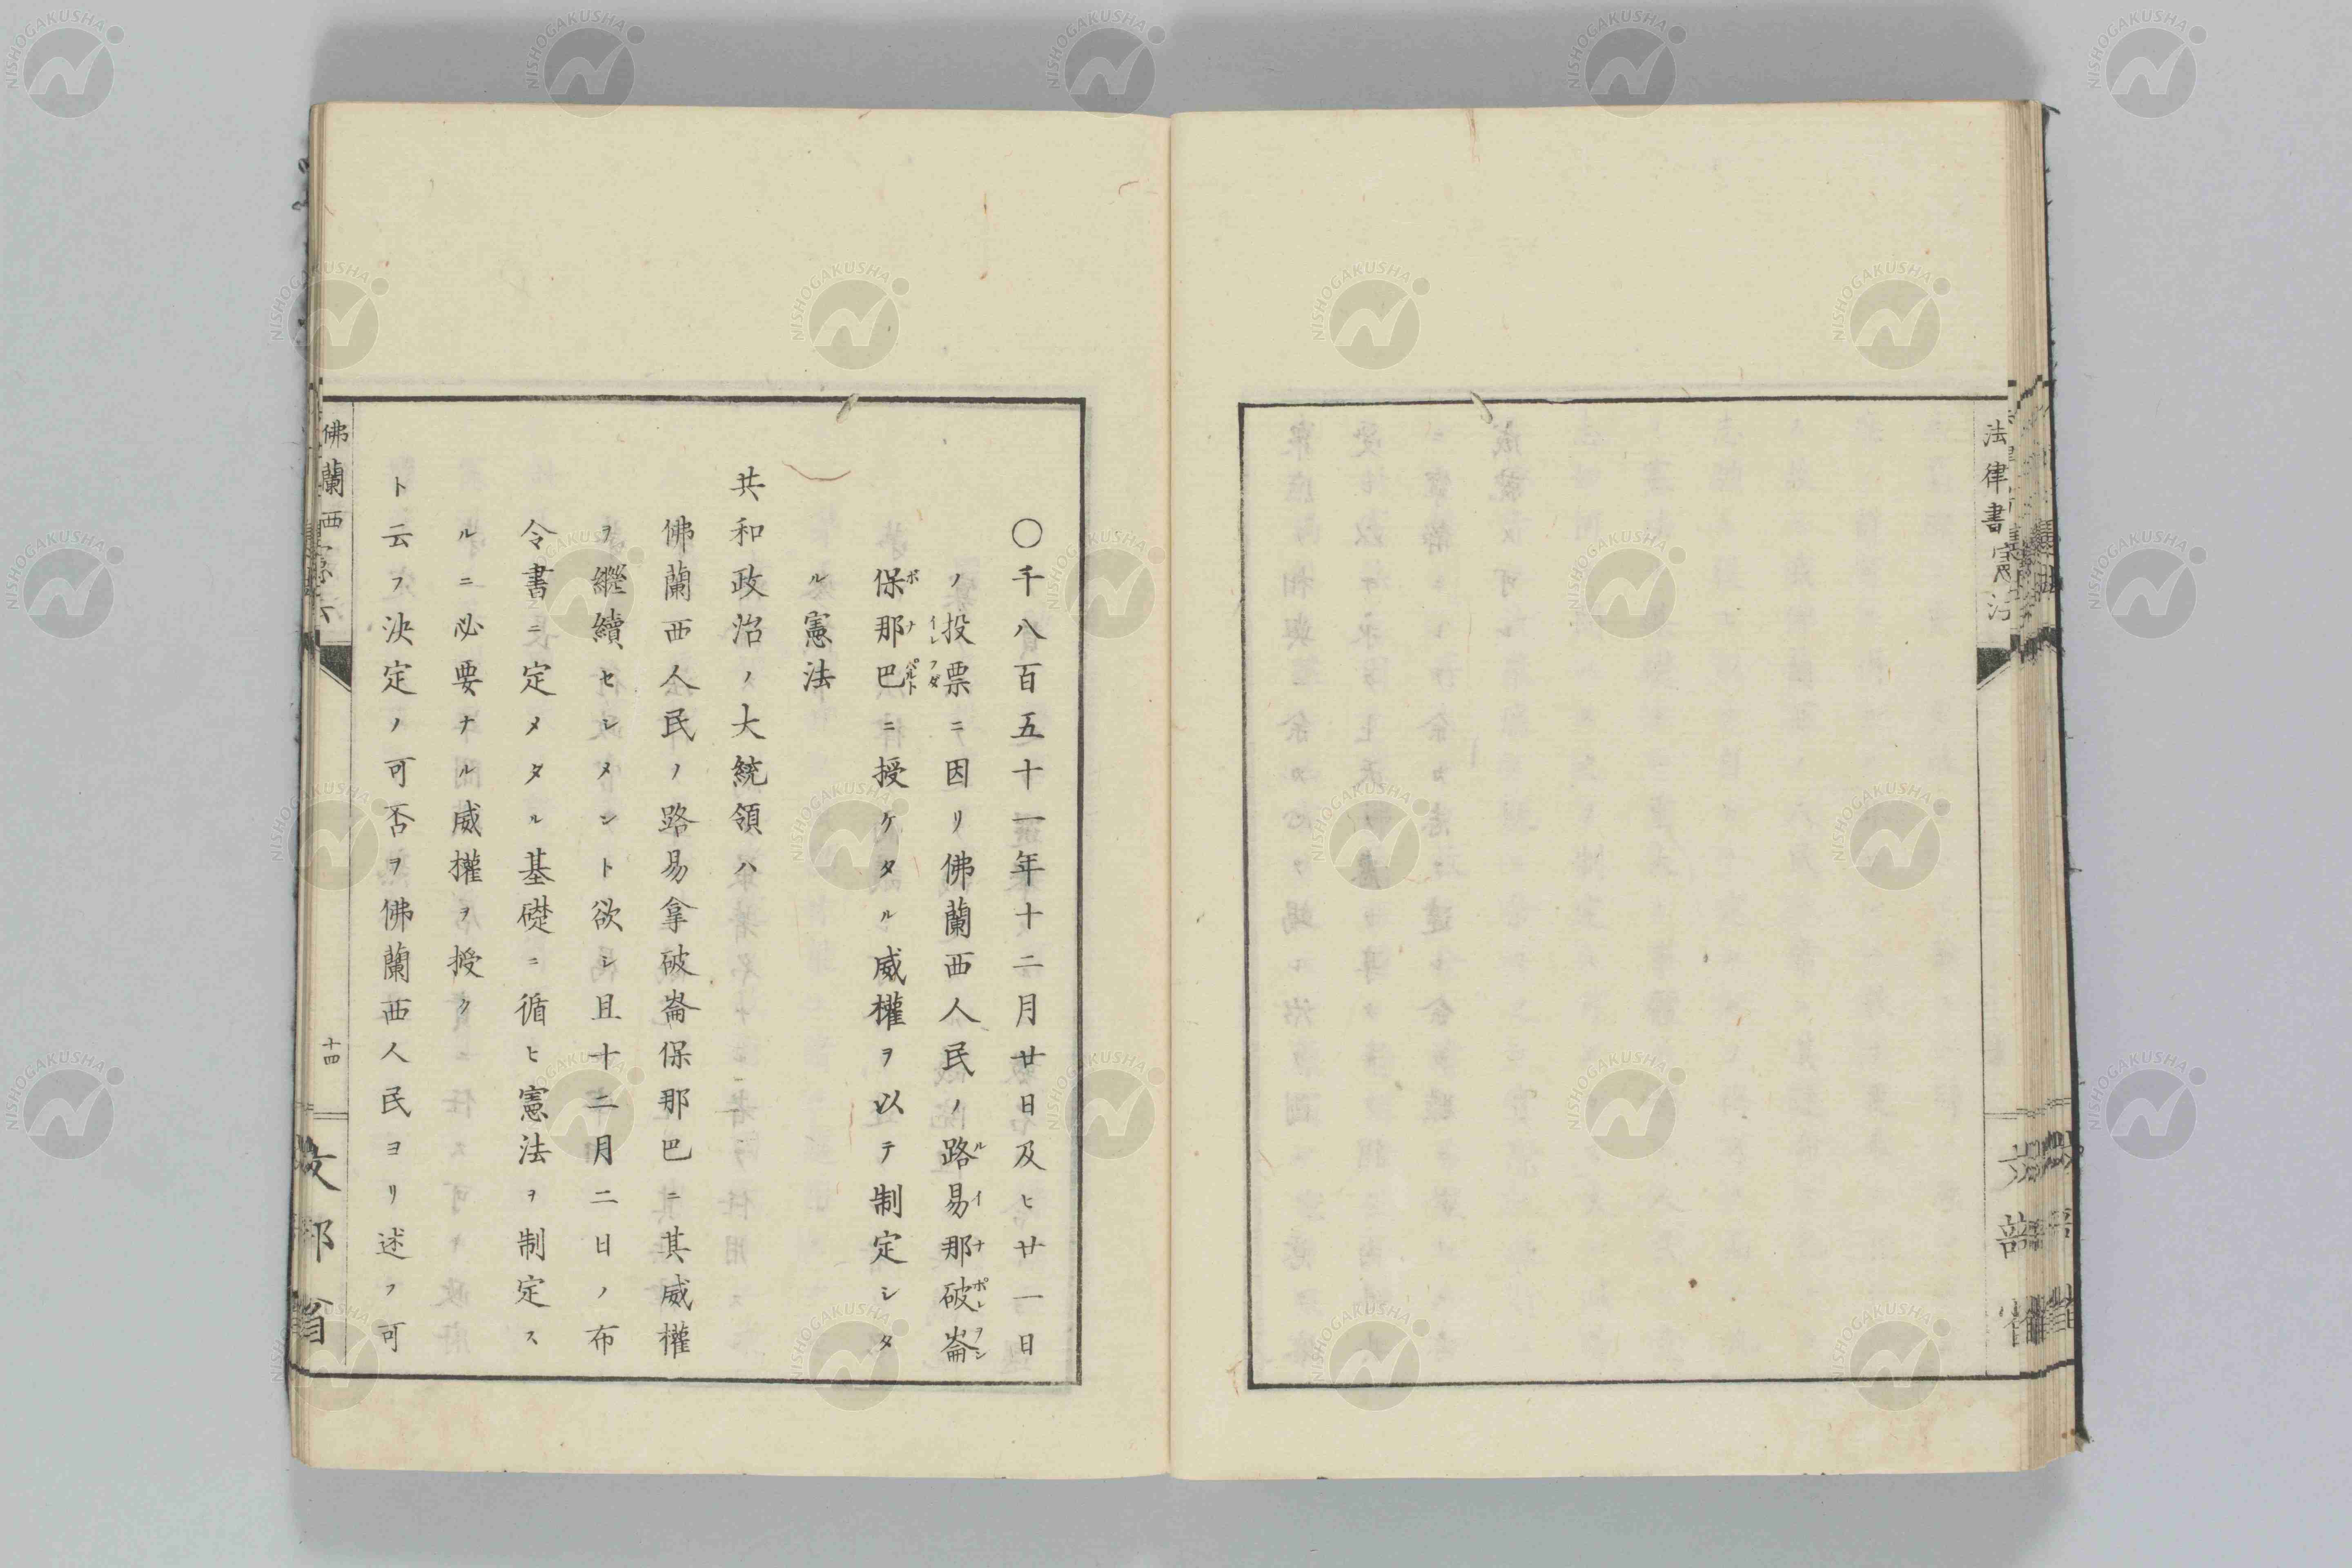 法律書 憲法
文部省
〇千八百五十一年十二月廿日及ヒ廿一日
ノ投票ニ因リ佛蘭西人民ノ路易那破崙
保那巴ニ授ケタル威權ヲ以テ制定シタ
ル憲法
共和政治ノ大統領ハ
佛蘭西人民ノ路易拿破崙保那巴ニ其威權
ヲ繼續セシメント欲シ且十二月二日ノ布
令書ニ定メタル基礎ニ循ヒ憲法ヲ制定ス
ルニ必要ナル威權ヲ授ク
ト云フ決定ノ可否ヲ佛蘭西人民ヨリ述フ可
佛蘭西
十四
文部省
NISHOGAKUSHA